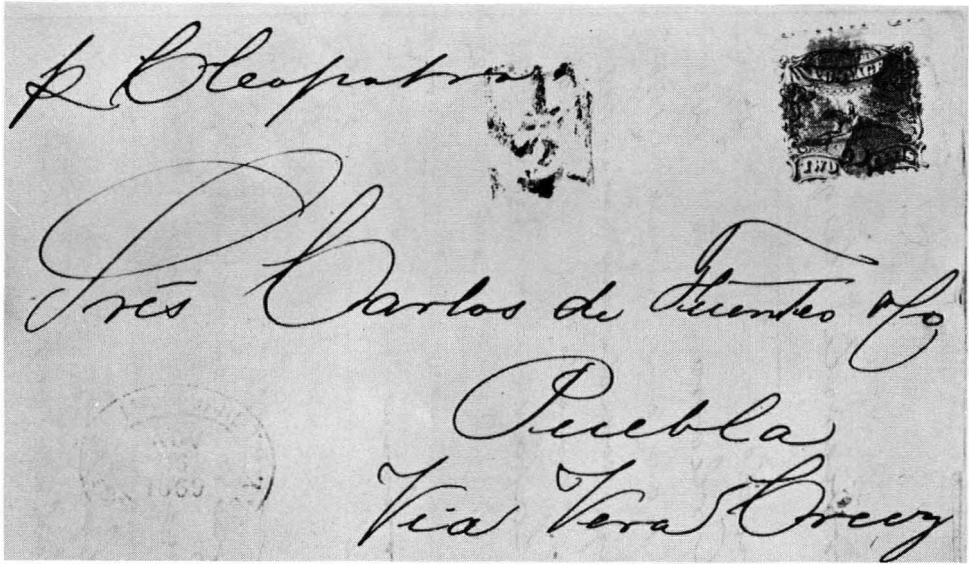 p Cleopatra
Srés Carlos de Fuentes & Co
Puebla
Via Vera Cruz
POSTAGE
TWO
1869